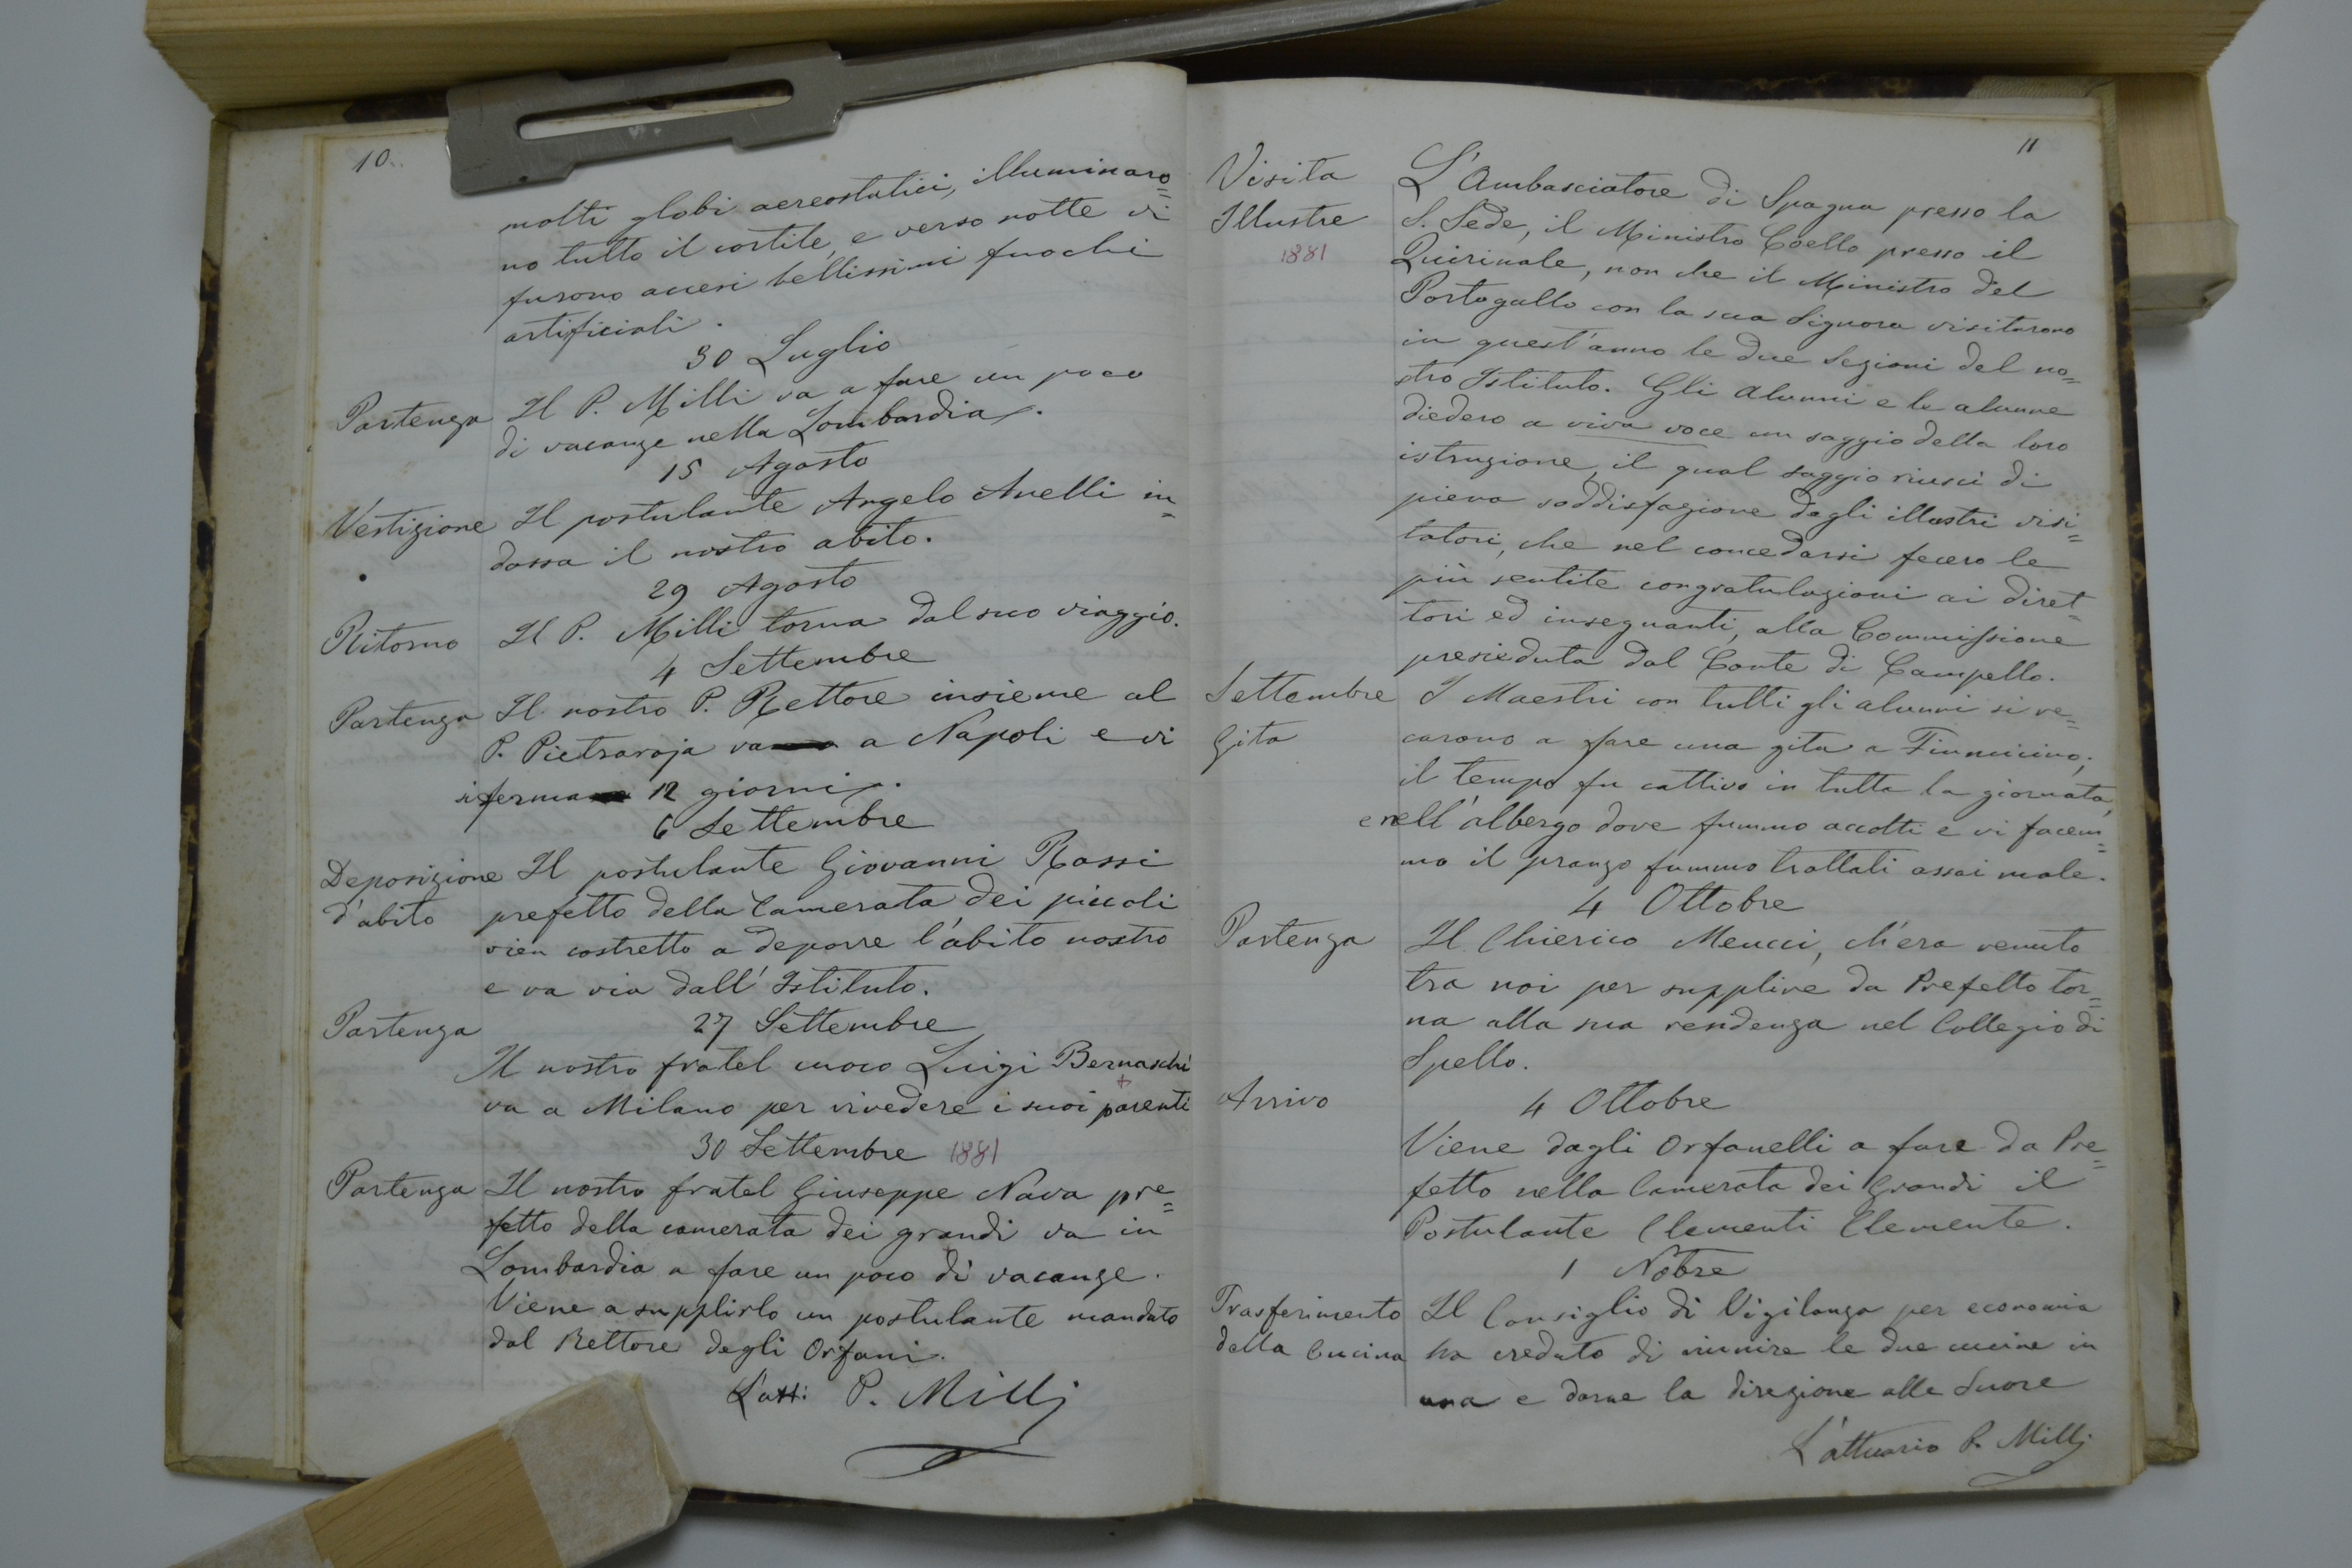 10.
molti globi aereostatici, illuminaro=
no tutto il cortile, e verso notte vi
furono accesi bellissimi fuochi
artificiali.
30 Luglio
Partenza Il P. Milli va a fare un poco
di vacanze nella Lombardia.
15 Agosto
Vestizione Il postulante Angelo Anelli in=
dossa il nostro abito.
29 Agosto
Ritorno Il P. Milli torna dal suo viaggio.
4 Settembre
Partenza Il nostro P. Rettore insieme al
P. Pietraroja va a Napoli e vi
si ferma 12 giorni.
6 Settembre
Deposizione Il postulante Giovanni Rossi
d'abito prefetto della Camerata dei piccoli
vien costretto a deporre l'abito nostro
e va via dall'Istituto.
Partenza 27 Settembre
Il nostro fratel cuoco Luigi Bernaschi
va a Milano per rivedere i suoi parenti
30 Settembre 1881
Partenza Il nostro fratel Giuseppe Nava pre=
fetto della camerata dei grandi va in
Lombardia a fare un poco di vacanze.
Viene a supplirlo un postulante mandato
dal Rettore degli Orfani.
L'att: P. Milli
11
Visita L'Ambasciatore di Spagna presso la
Illustre S. Sede, il Ministro Coello presso il
1881 Quirinale, non che il Ministro del
Portogallo con la sua Signora visitarono
in quest'anno le due Sezioni del no=
stro Istituto. Gli Alunni e le alunne
diedero a viva voce un saggio della loro
istruzione, il qual saggio riuscì di
piena soddisfazione degli illustri visi=
tatori, che nel concedarsi fecero le
più sentite congratulazioni ai diret=
tori ed insegnanti, alla Commissione
presieduta dal Conte di Campello.
Settembre I Maestri con tutti gli alunni si re=
Gita carono a fare una gita a Fiumicino;
il tempo fu cattivo in tutta la giornata,
e nell'albergo dove fummo accolti e vi facem=
mo il pranzo fummo trattati assai male.
4 Ottobre
Partenza Il Chierico Meucci, ch'era venuto
tra noi per supplire da Prefetto tor=
na alla sua residenza nel Collegio di
Spello.
Arrivo 4 Ottobre
Viene dagli Orfanelli a fare da Pre=
fetto nella Camerata dei Grandi il
Postulante Clementi Clemente.
1 Nobre
Trasferimento Il Consiglio di Vigilanza per economia
della Cucina ha creduto di riunire le due cucine in
una e darne la direzione alle Suore
L'attuario P. Milli